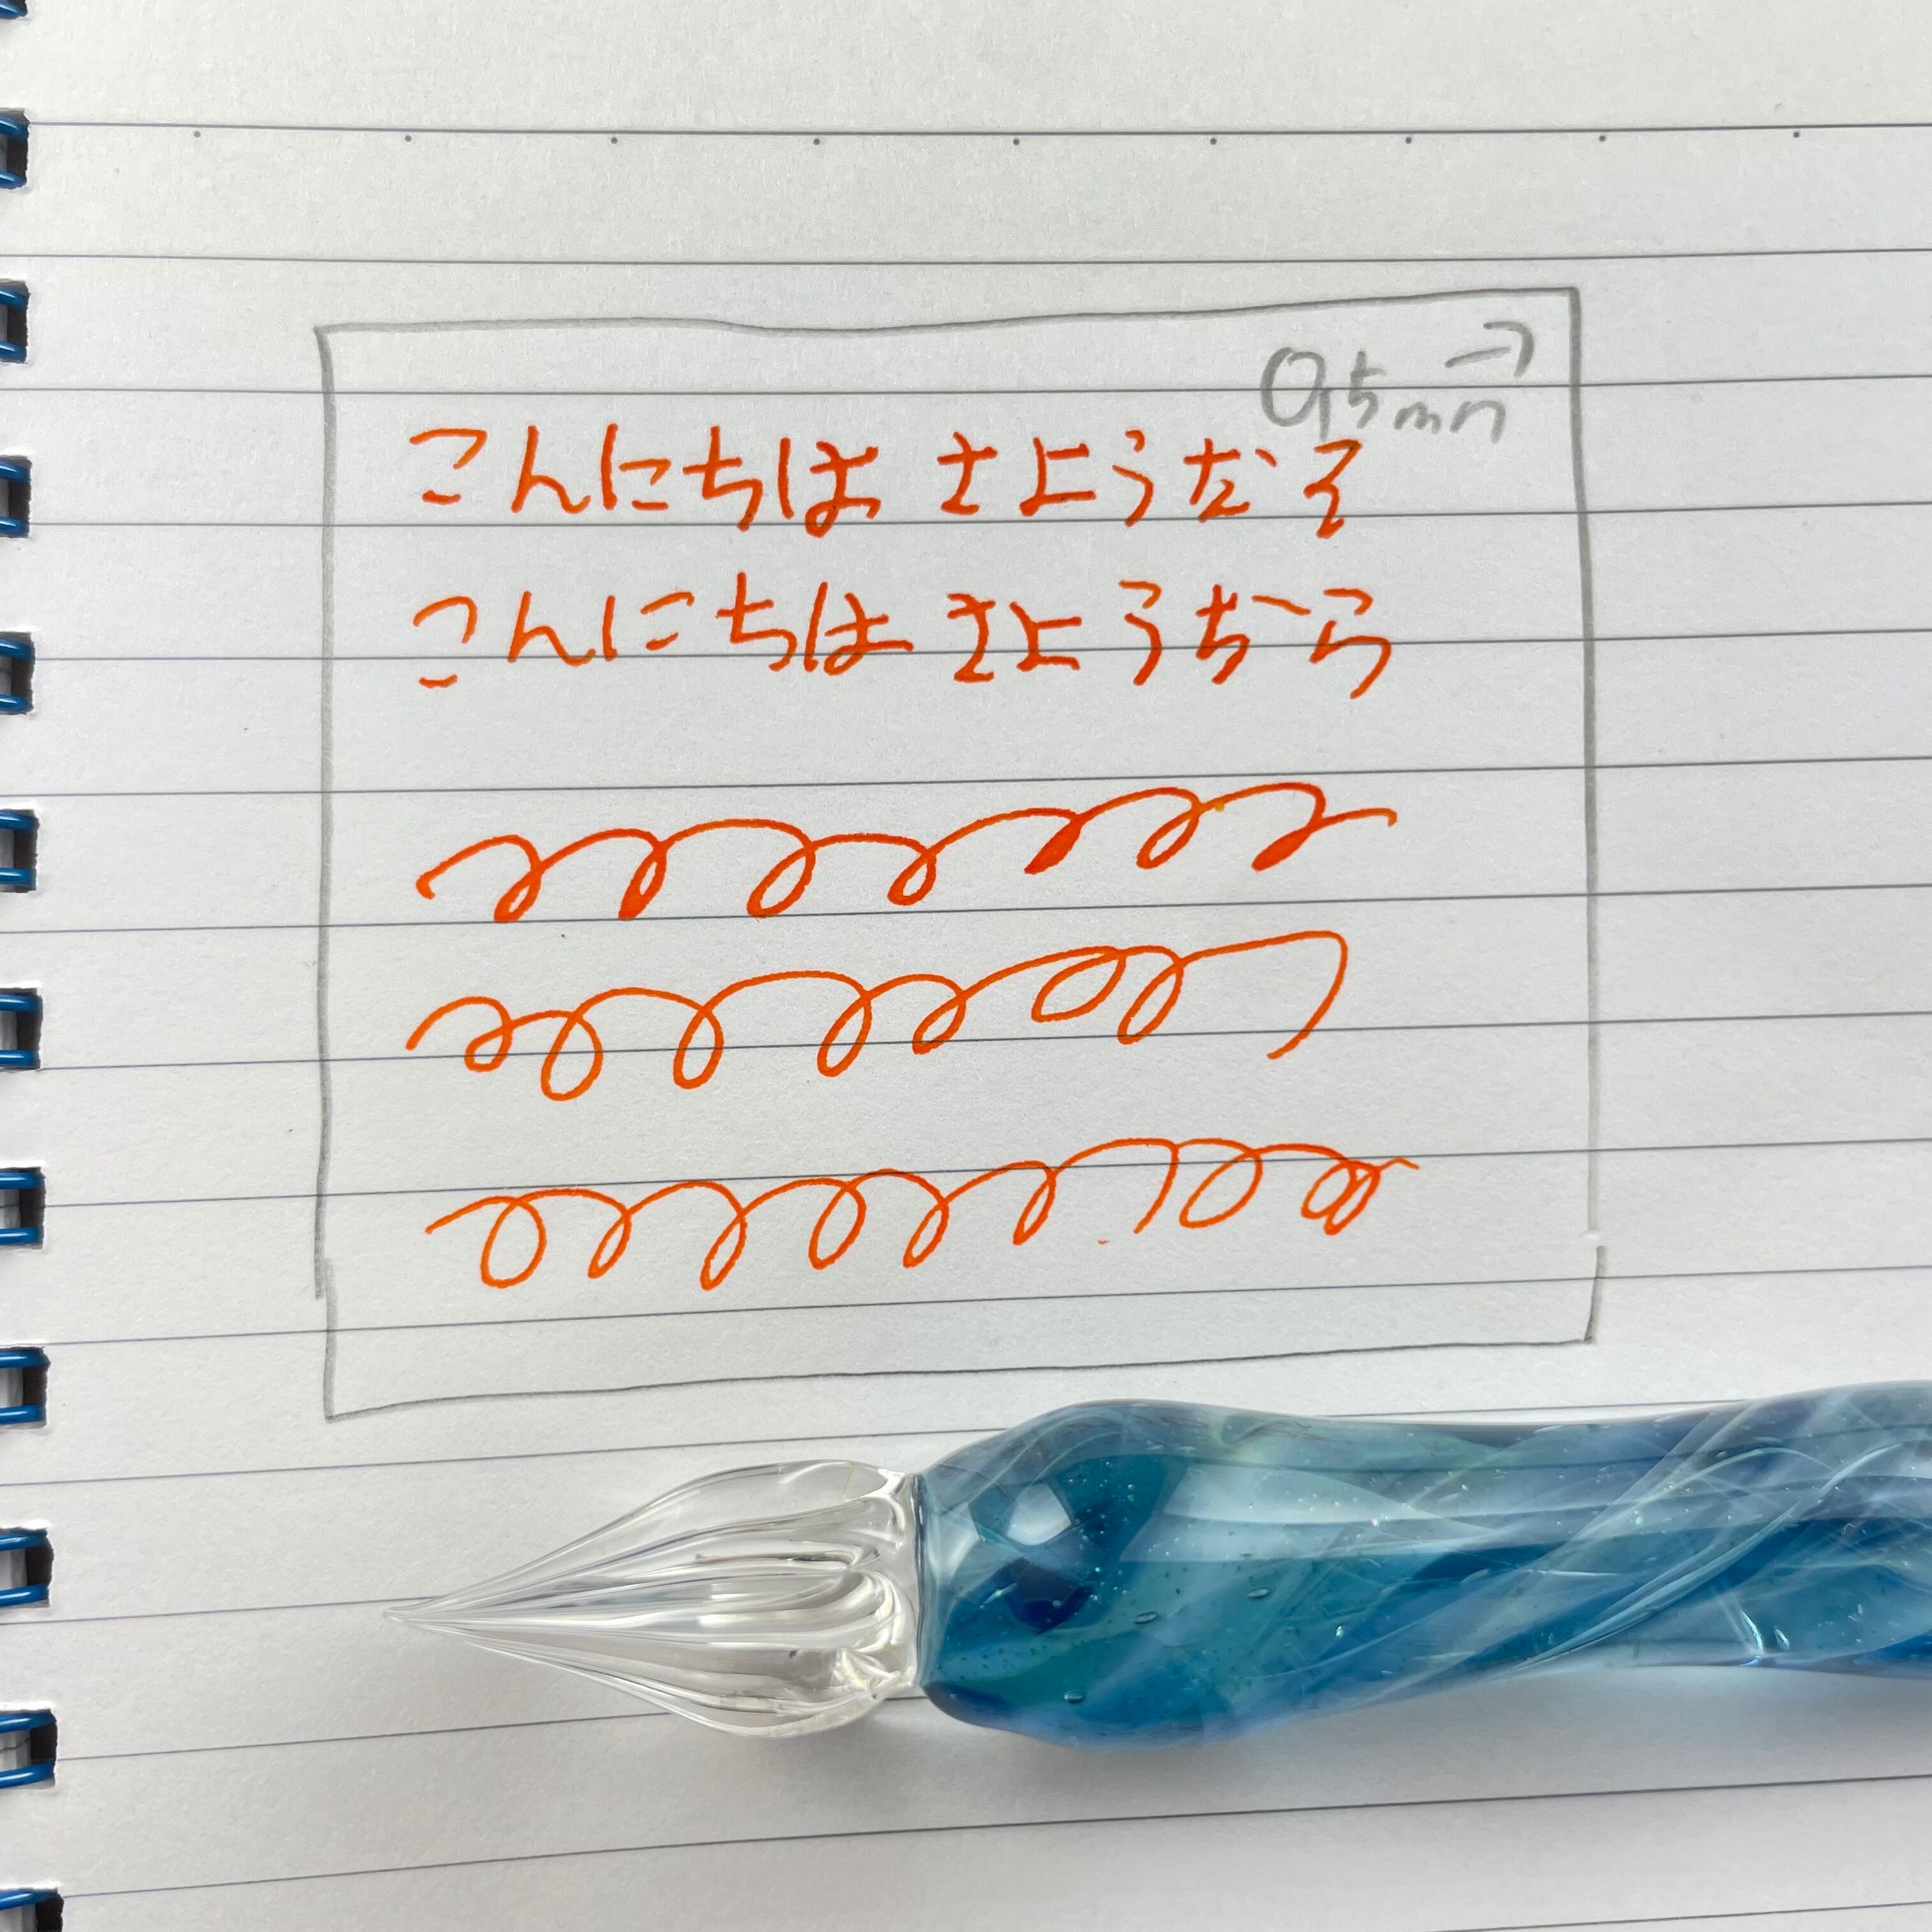 0,5mm
こんにちは さようなら
こんにちは さようなら